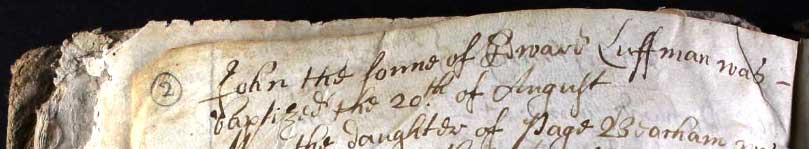 ② John the sonne of Edward Luffman was
baptized the 20th of August
the daughter of Page Beacham